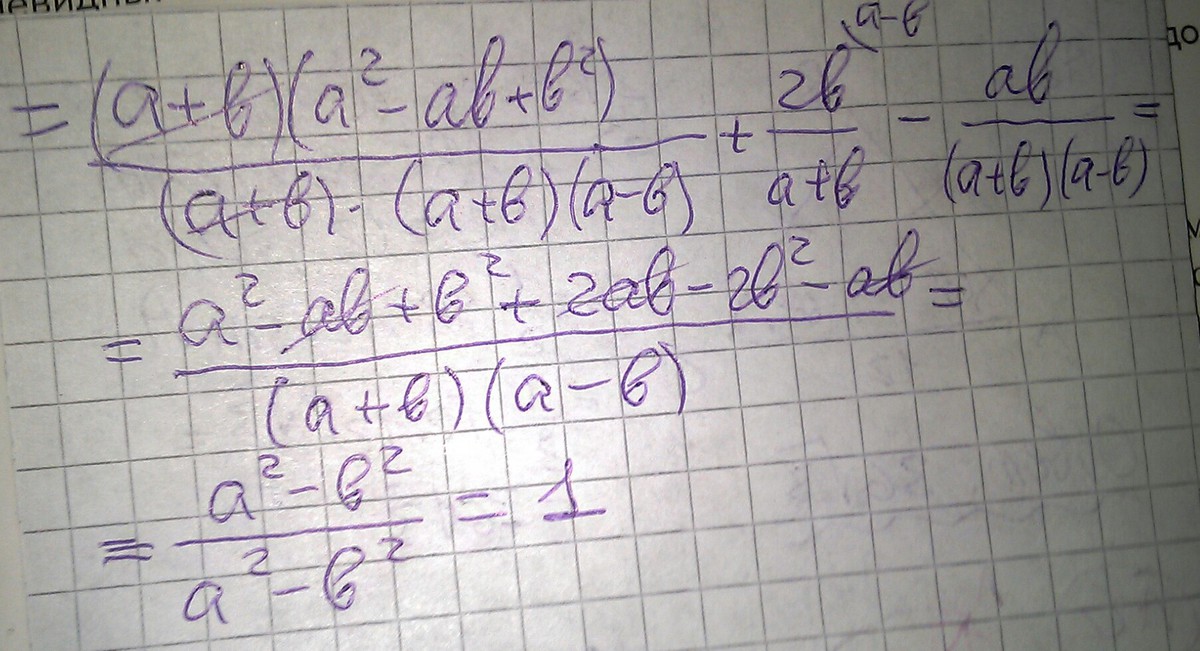 = (a+b)(a²-ab+b²)/((a+b)·(a+b)(a-b)) + 2b\a-b/(a+b) - ab/((a+b)(a-b)) =
= (a²-ab+b²+2ab-2b²-ab)/((a+b)(a-b)) =
= (a²-b²)/(a²-b²) = 1
до